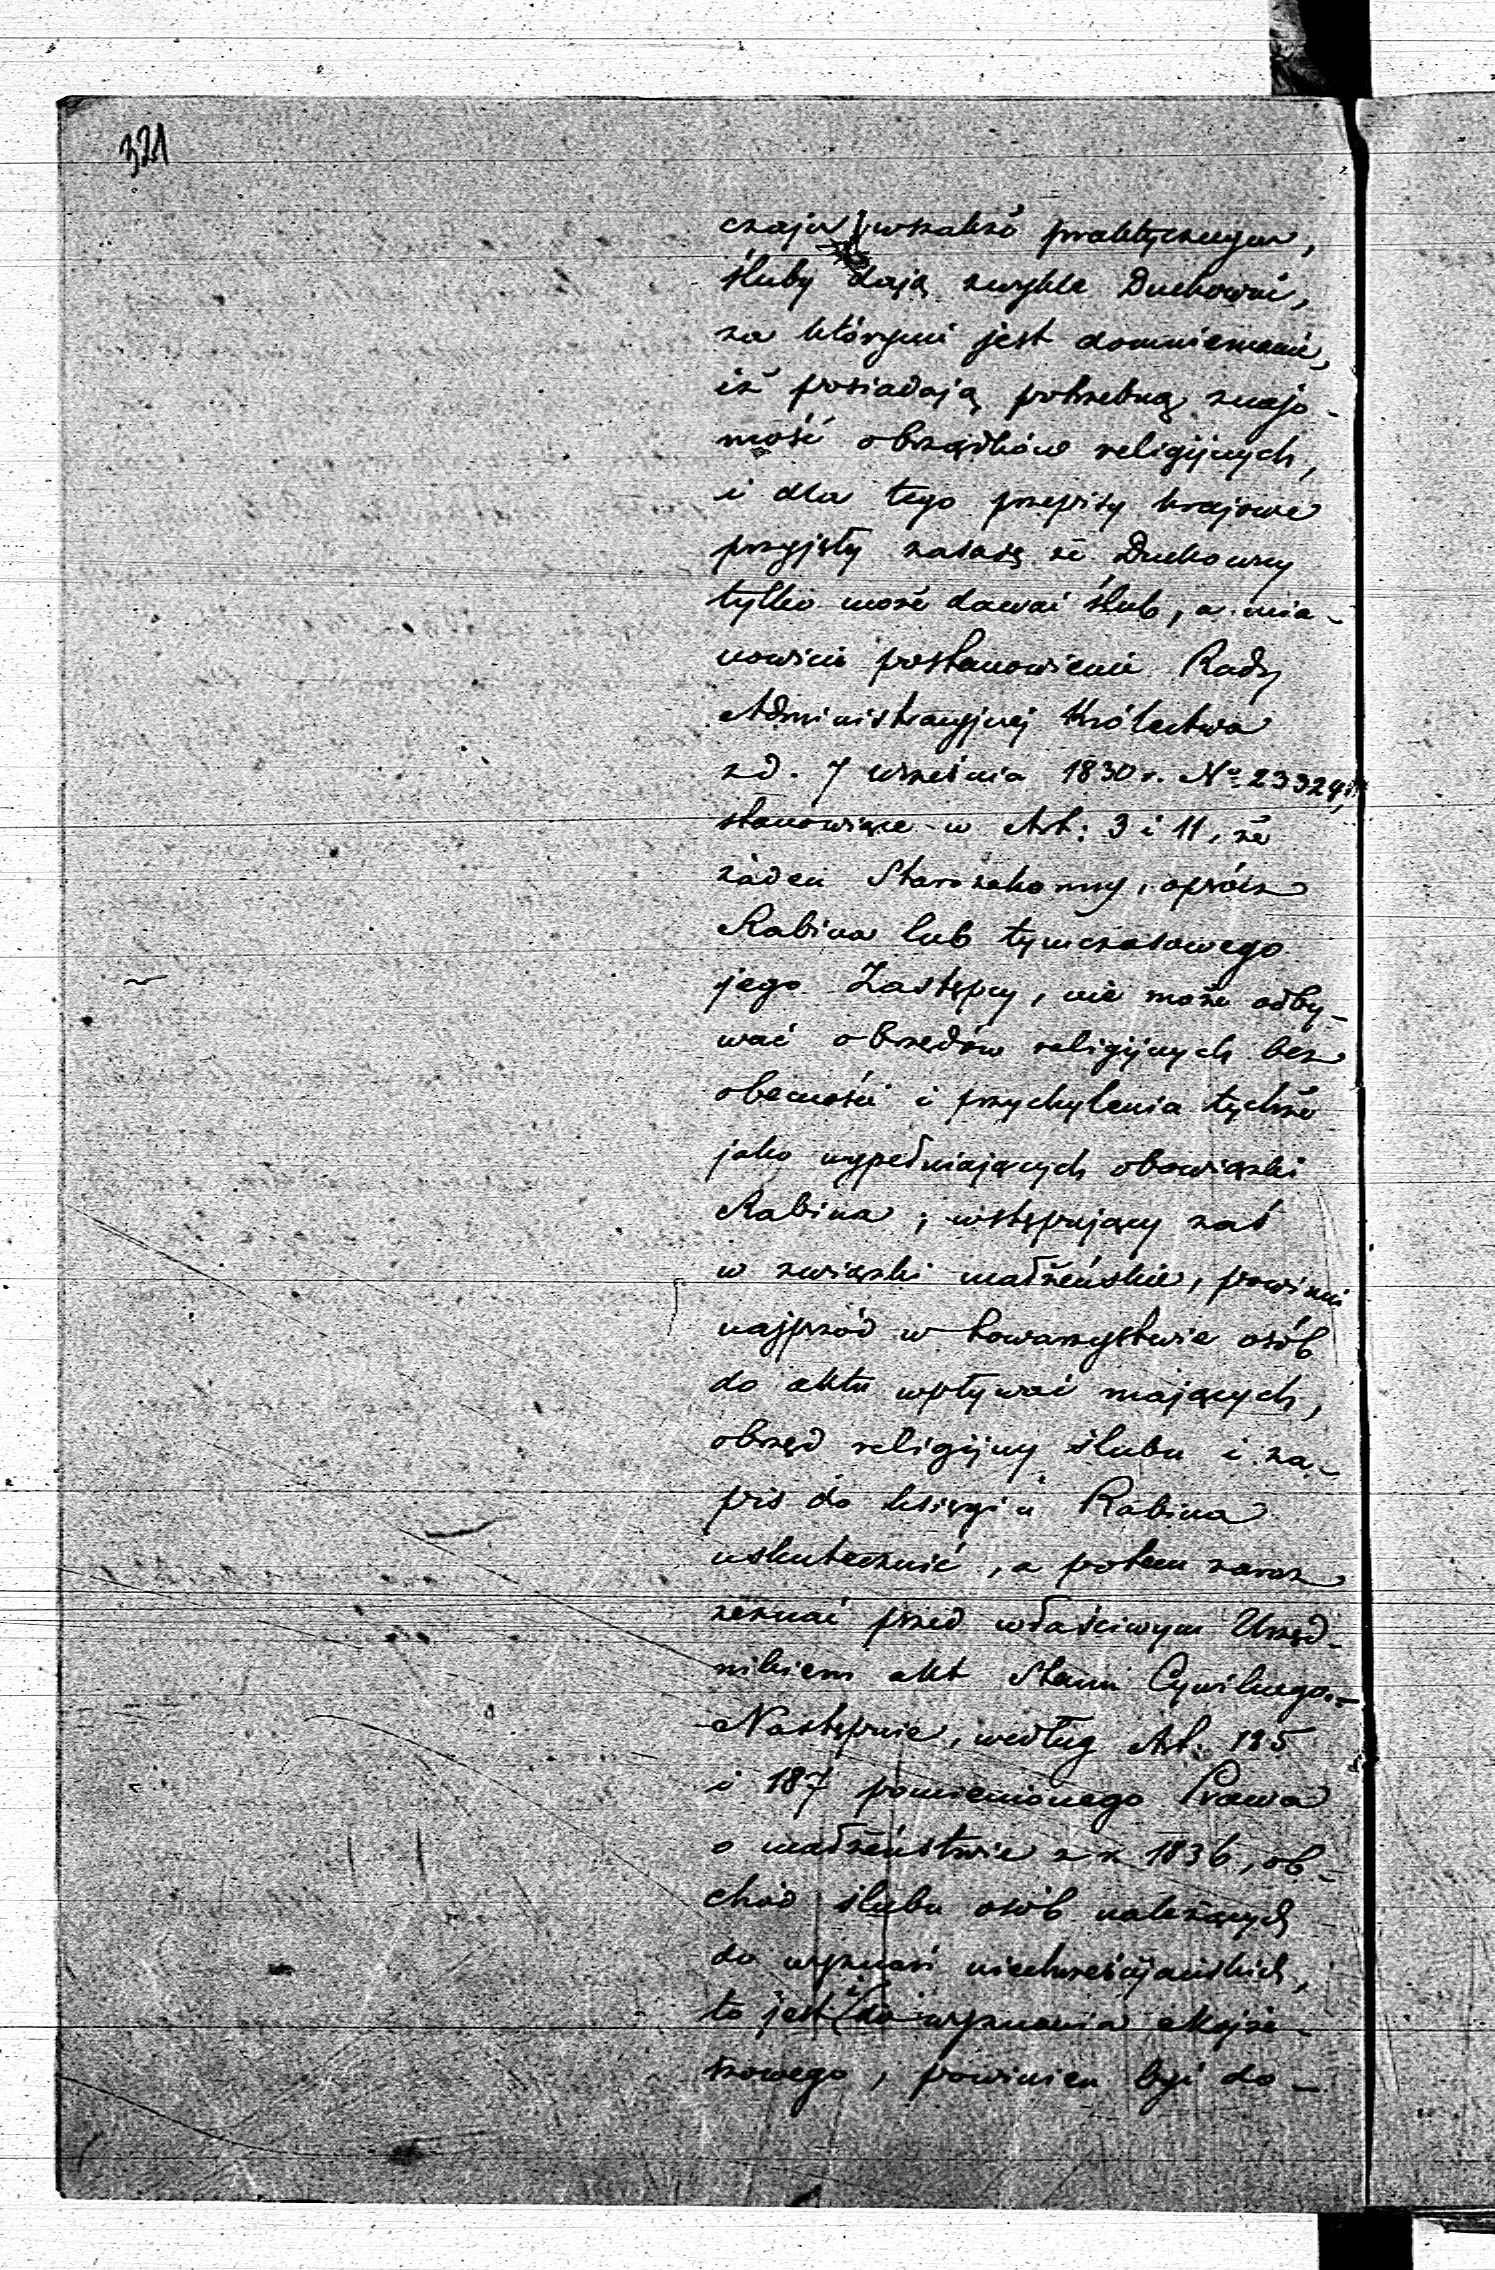 321
czaju wszakże praktycznym,
śluby dają zwykle Duchowni,
za którymi jest domniemanie,
iż posiadają potrzebną znajo-
mość obrządków religijnych,
i dla tego przepisy krajowe
przyjęły zasadę że Duchowny
tylko może dawać ślub, a mia-
nowicie postanowienie Rady
Administracyjnej Królestwa
z d. 7 września 1830 r. No 23324,
stanowiące w Art: 3 i 11, że
żaden Starozakonny, oprócz
Rabina lub tymczasowego
jego Zastępcy, nie może odby-
wać obrzędów religijnych bez
obecności i przychylenia tychże
jako wypełniających obowiązki
Rabina; wstępujący zaś
w związki małżeńskie, powinni
najprzód w towarzystwie osób
do aktu wpływać mających,
obrzęd religijny ślubu i za-
pis do księgi u Rabina
uskutecznić, a potem zaraz
zeznać przed właściwym Urzęd-
nikiem akt Stanu Cywilnego.-
Następnie, według Art. 185
i 187 pomienionego Prawa
o małżeństwie z r 1836, ob-
chód ślubu osób należących
do wyznań niechrześcijańskich,
to jest i do wyznania Mojże-
szowego, powinien być do-